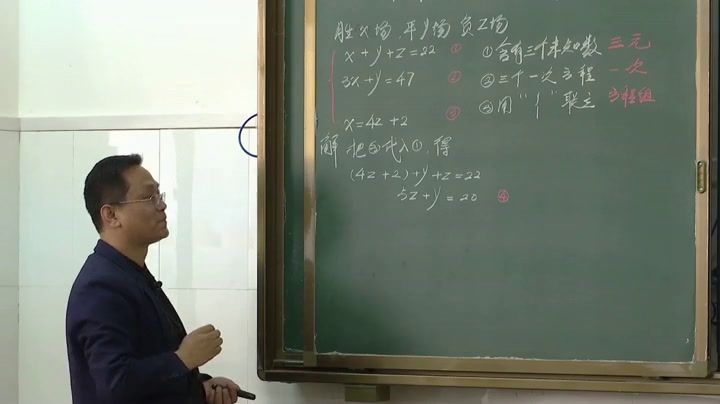 胜x场,平y场,负z场
x+y+z=22 ①
3x+y=47 ②
x=4z+2 ③
①含有三个未知数
②三个一次方程
③用"{"联立
三元
一次
方程组
解 把③代入①,得
(4z+2)+y+z=22
5z+y=20 ④